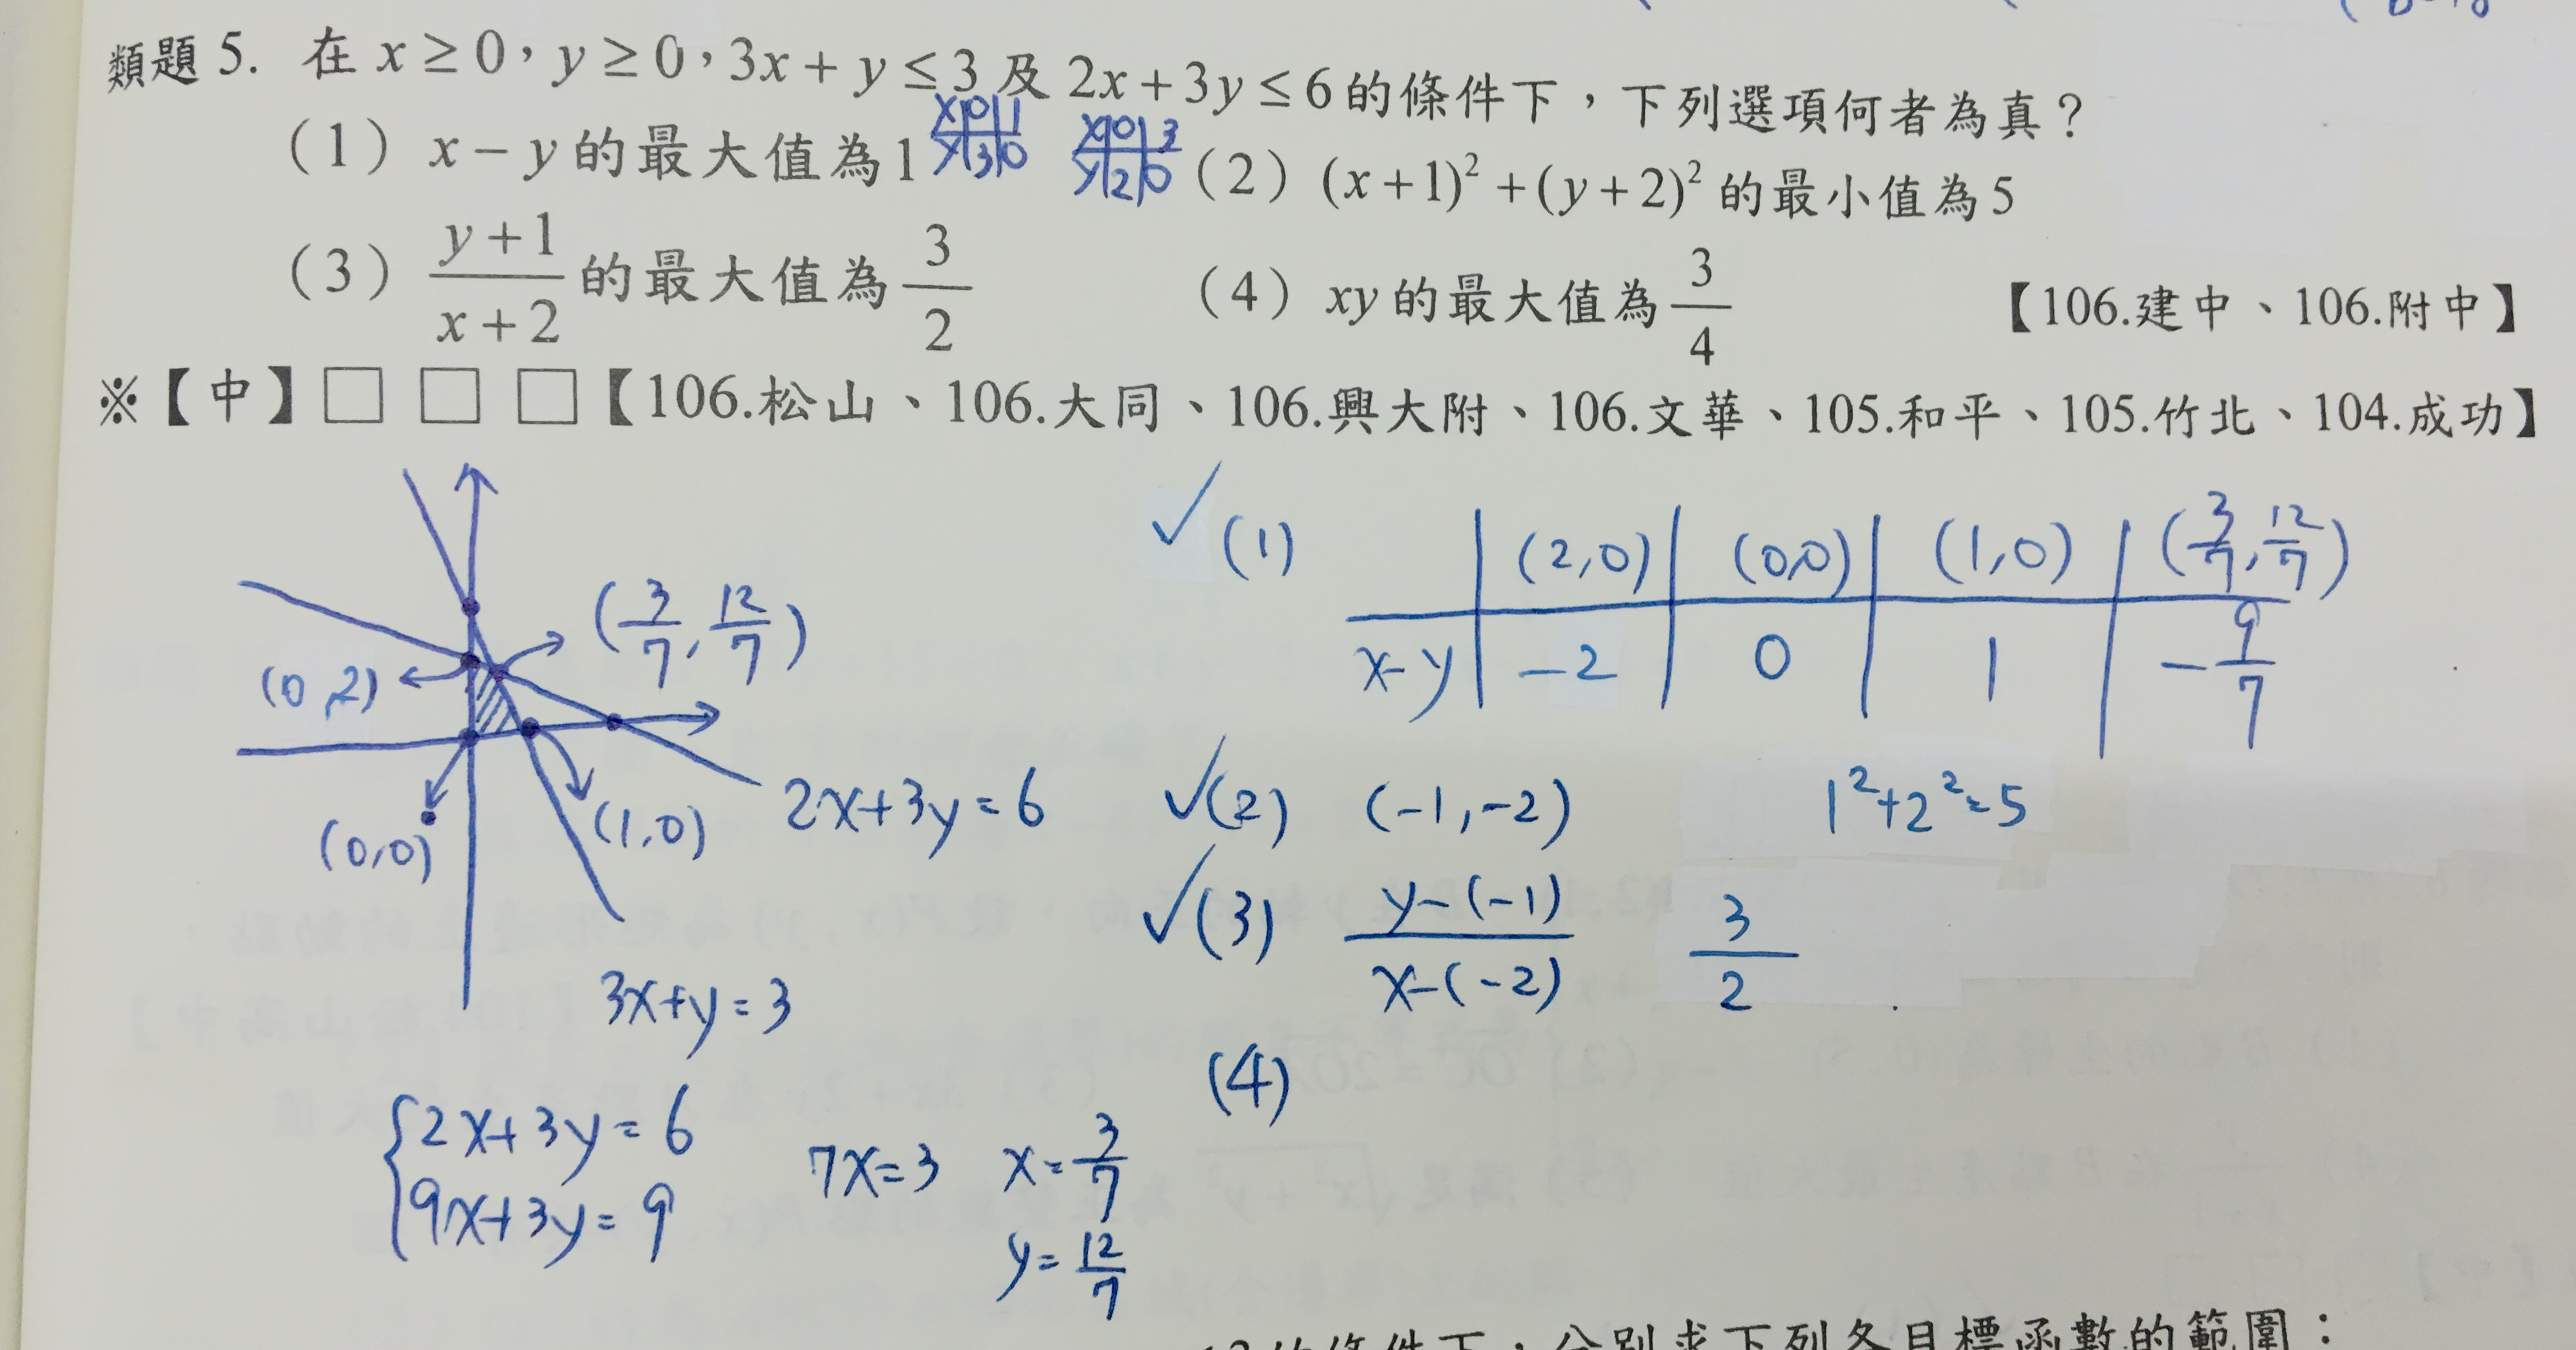 類題 5. 在 x ≥ 0，y ≥ 0，3x + y ≤ 3 及 2x + 3y ≤ 6 的條件下，下列選項何者為真？
x 0 1
y 3 0
x 0 3
y 2 0
（1）x − y 的最大值為 1 （2）(x + 1)² + (y + 2)² 的最小值為 5
（3）(y + 1)/(x + 2) 的最大值為 3/2 （4）xy 的最大值為 3/4 【106.建中、106.附中】
※【中】□ □ □【106.松山、106.大同、106.興大附、106.文華、105.和平、105.竹北、104.成功】
(3/7, 12/7)
(0,2)
(0,0)
(1,0)
2x+3y=6
3x+y=3
{2x+3y=6
9x+3y=9
7x=3 x=3/7
y=12/7
✓(1) (2,0) (0,0) (1,0) (3/7, 12/7)
x-y -2 0 1 -9/7
✓(2) (-1,-2) 1²+2²=5
✓(3) (y-(-1))/(x-(-2)) 3/2
(4)
的條件下，分別求下列各目標函數的範圍：